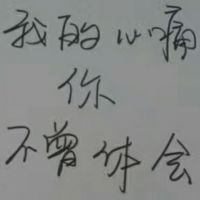 我的心痛
你
不曾体会